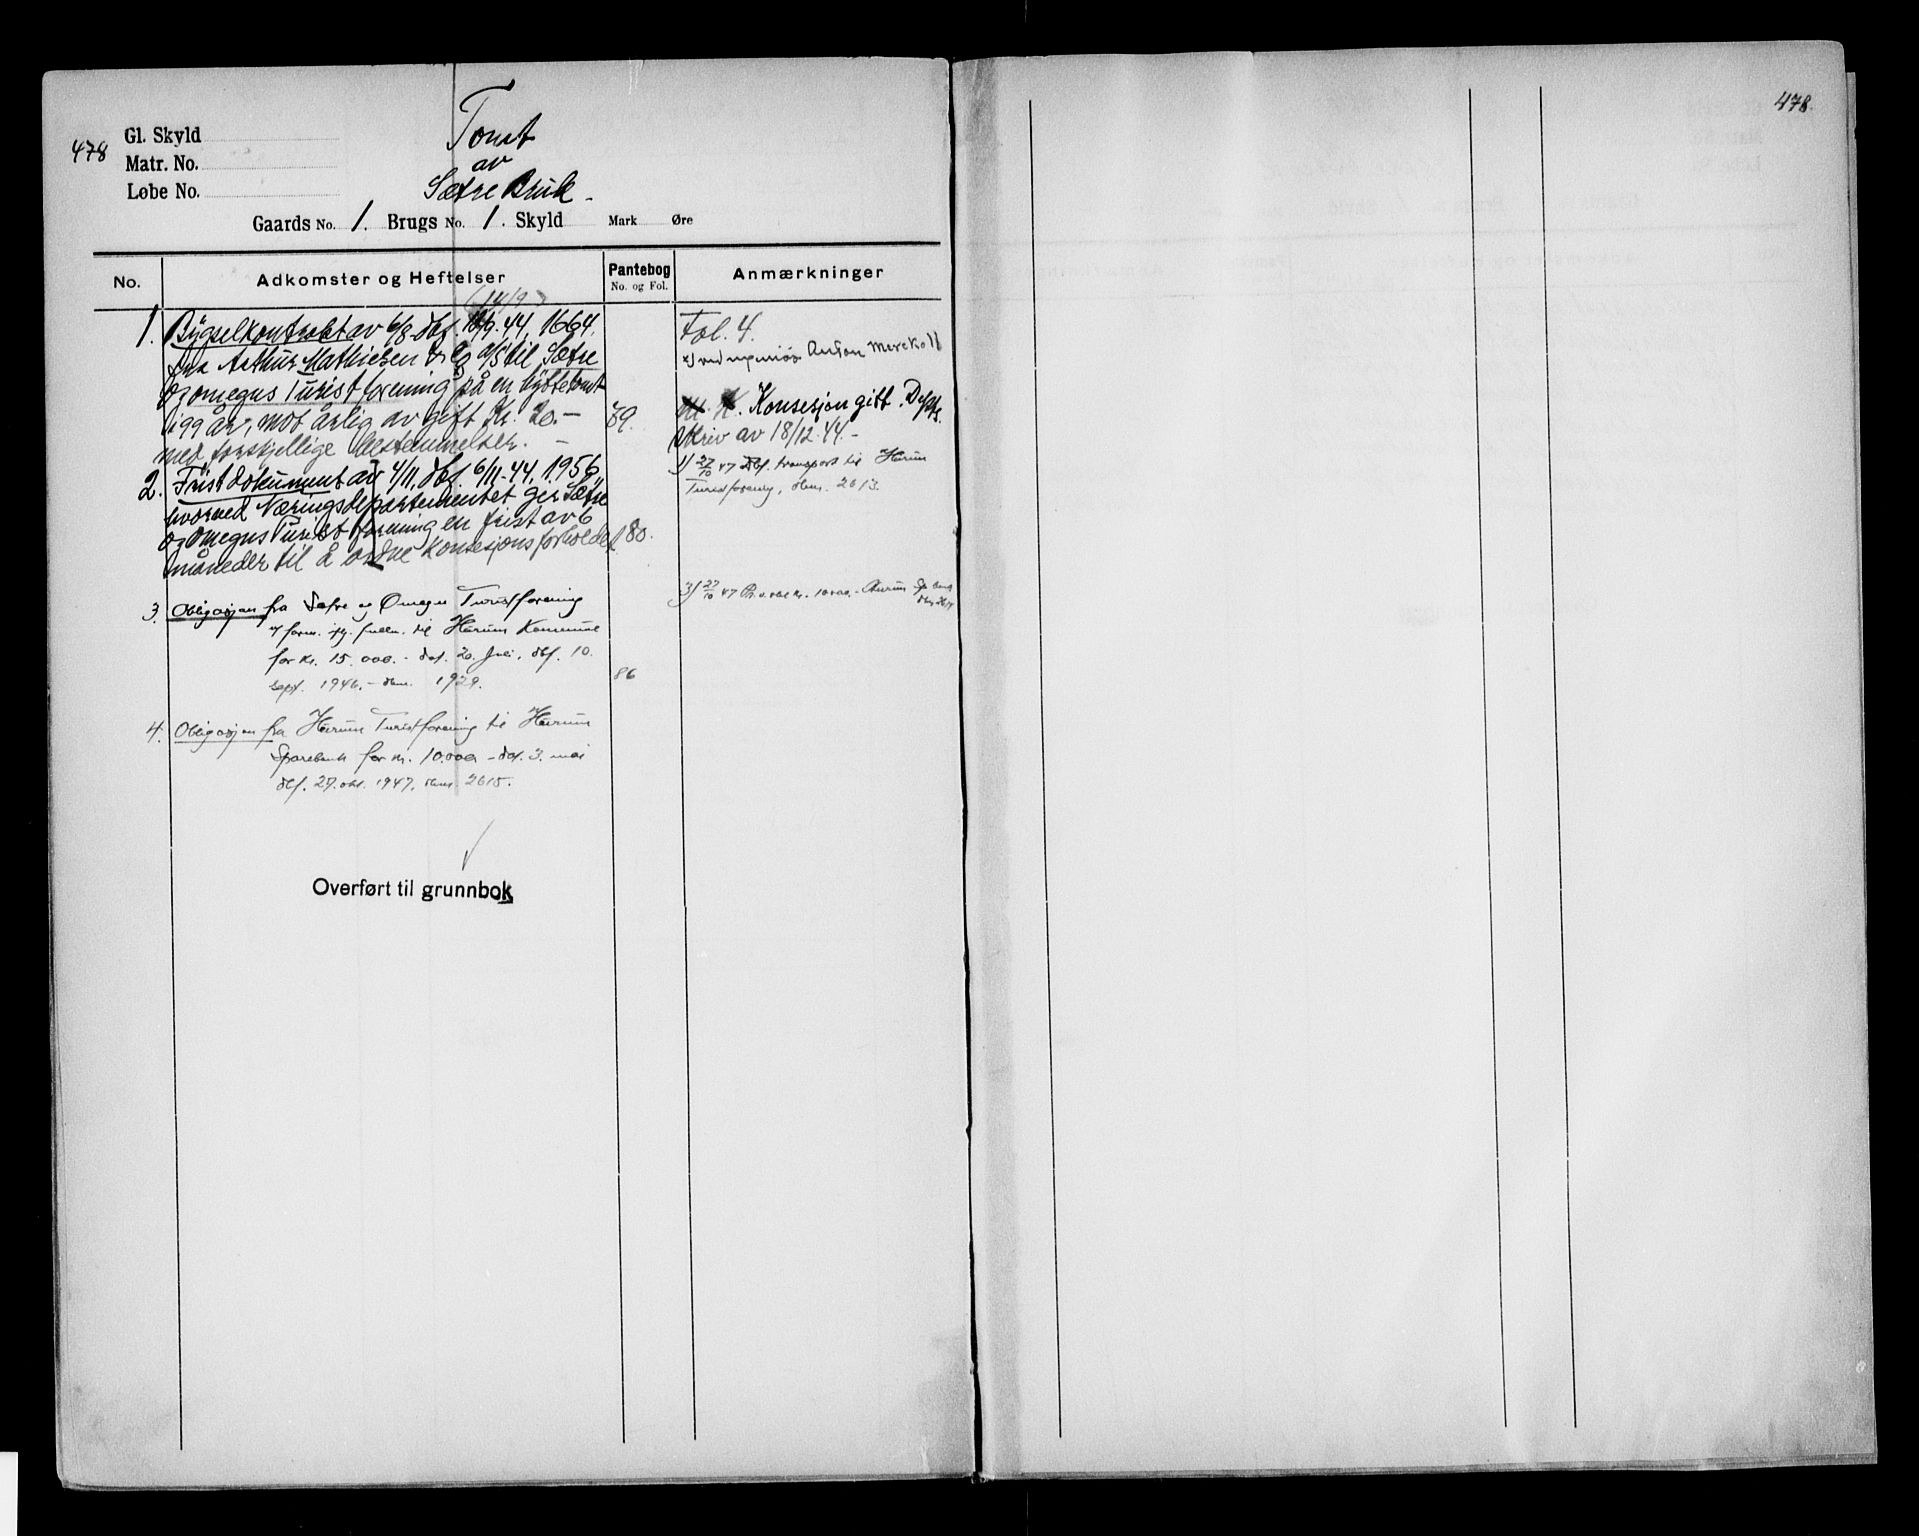 478
478
Gl. Skyld
Matr. No.
Løbe No.
Tomt
av
Sætre Bruk.
Gaards No. 1. Brugs No. 1. Skyld Mark Øre
No. Adkomster og Heftelser Pantebog No. og Fol. Anmærkninger
(14/9)
1. Bygselkontrakt av 6/8 dbf. 44, 1664.
fra Arthur Mathiesen & Co A/S til Sætre
og omegns Turistforening på en hyttetomt
i 99 år, mot årlig avgift Kr. 20.-
79.
med forskjellige bestemmelser. -
2. Fristdokument av 4/11, dbf. 6/11-44, 1956
hvorved Næringsdepartementet ger Sætre
og omegns Turistforening en frist av 6
måneder til å ordne konsesjonsforholdet
80.
3. Obligasjon fra Sætre og Omegn Turistforening
v/ form. ifg. fullm. til Hurum Kommune
for kr. 15.000.- dat. 20. Juli, dbf. 10.
sept. 1946.- dbnr. 1929.
86
4. Obligasjon fra Hurum Turistforening til Hurum
Sparebank for kr. 10.000 - dat. 3. mai
dbf. 27. okt. 1947, dbnr. 2615.
Overført til grunnbok
Fol. 4.
x) ved ingeniør Anton
Konsesjon gitt. Depts.
skriv av 18/12-44.-
1) 27/10 47 Dbf. transport til Hurum
Turistforening, dbnr. 2613.
3) 27/10 47 Pr. v. obl kr. 10000.- Hurum Sp.bank
dbnr 2614